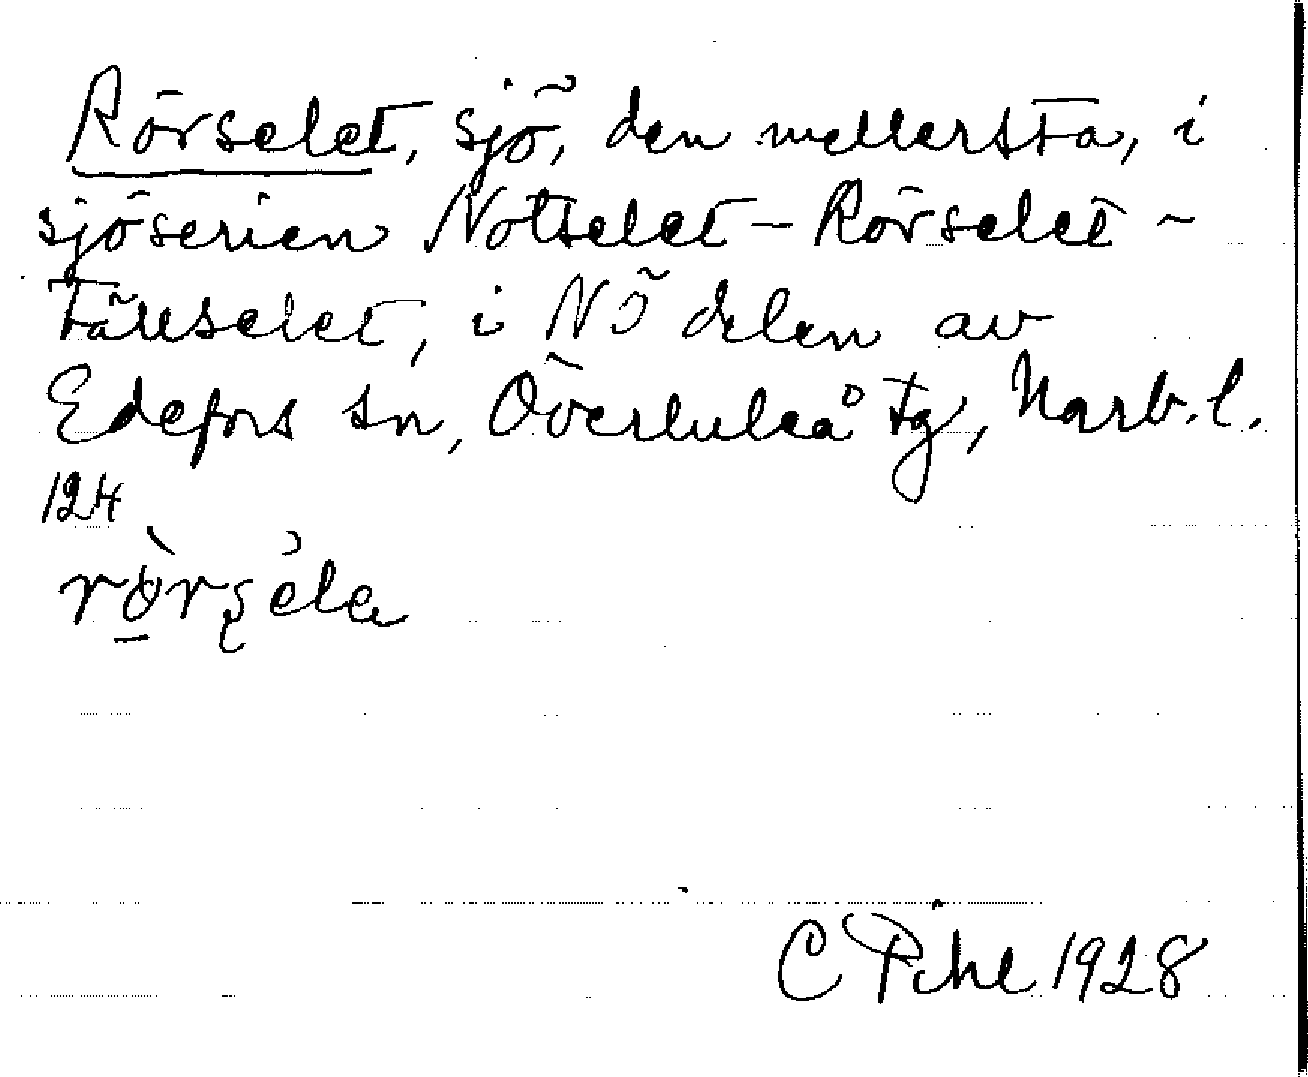 Rörselet, sjö, den mellersta, i
sjöserien Notselet - Rörselet -
Tällselet, i NÖ delen av
Edefors sn, Överluleå tg, Norrb. l.
124